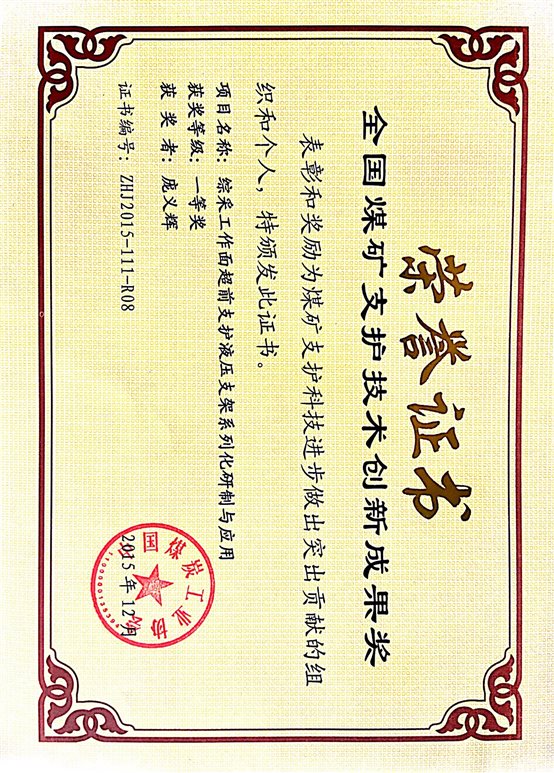 荣誉证书
全国煤矿支护技术创新成果奖
表彰和奖励为煤矿支护科技进步做出突出贡献的组
织和个人，特颁发此证书。
项目名称：综采工作面超前支护液压支架系列化研制与应用
获奖等级：一等奖
获奖者：庞义辉
证书编号：ZHJ2015-111-R08
中国煤炭工业协会
2015年12月